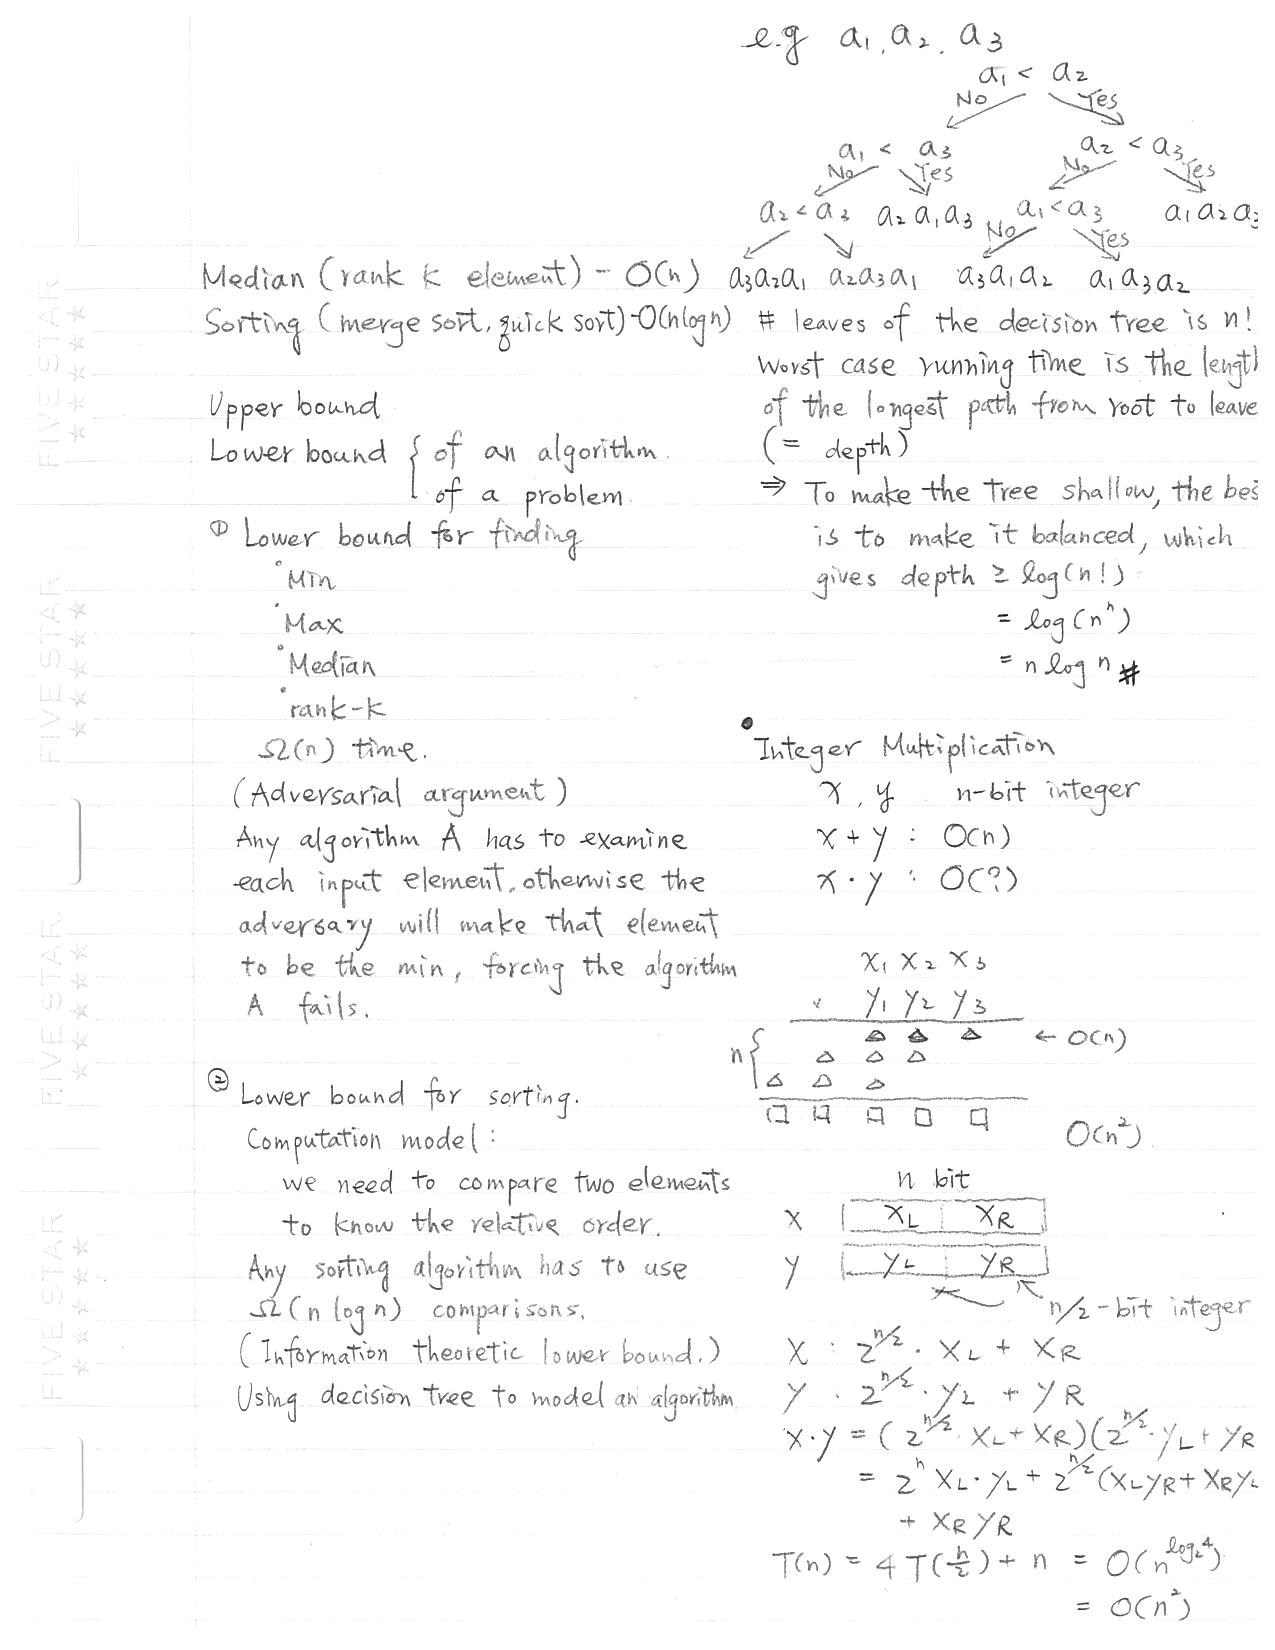 Median (rank k element) - O(n)
Sorting (merge sort, quick sort)-O(nlogn)
Upper bound
Lower bound { of an algorithm.
of a problem.
① Lower bound for finding
Min
Max
Median
rank-k
Ω(n) time.
(Adversarial argument)
Any algorithm A has to examine
each input element, otherwise the
adversary will make that element
to be the min, forcing the algorithm
A fails.
② Lower bound for sorting.
Computation model:
we need to compare two elements
to know the relative order.
Any sorting algorithm has to use
Ω(n log n) comparisons.
(Information theoretic lower bound.)
Using decision tree to model an algorithm
e.g a₁, a₂, a₃
a₁ < a₂
No Yes
a₁ < a₃ a₂ < a₃
No Yes No Yes
a₂ < a₃ a₂ a₁ a₃ a₁ < a₃ a₁ a₂ a₃
No Yes
a₃a₂a₁ a₂a₃a₁ a₃a₁a₂ a₁a₃a₂
# leaves of the decision tree is n!
Worst case running time is the lengt
of the longest path from root to leave
(= depth)
⇒ To make the tree shallow, the bes
is to make it balanced, which
gives depth ≥ log(n!)
= log(nⁿ)
= n log n #
• Integer Multiplication
x, y n-bit integer
x + y : O(n)
x · y : O(?)
x₁ x₂ x₃
× y₁ y₂ y₃
n { △ △ △ ← O(n)
△ △ △
△ △ △
□ □ □ □ □ O(n²)
n bit
x X_L X_R
y y_L y_R
n/2-bit integer
X : 2^{n/2} · X_L + X_R
y · 2^{n/2} · y_L + y_R
x·y = (2^{n/2} · X_L + X_R)(2^{n/2} · y_L + y_R
= 2ⁿ X_L · y_L + 2^{n/2} (X_L y_R + X_R y_L
+ X_R y_R
T(n) = 4 T(n/2) + n = O(n^{log₂4})
= O(n²)
FIVE STAR
FIVE STAR
FIVE STAR
FIVE STAR